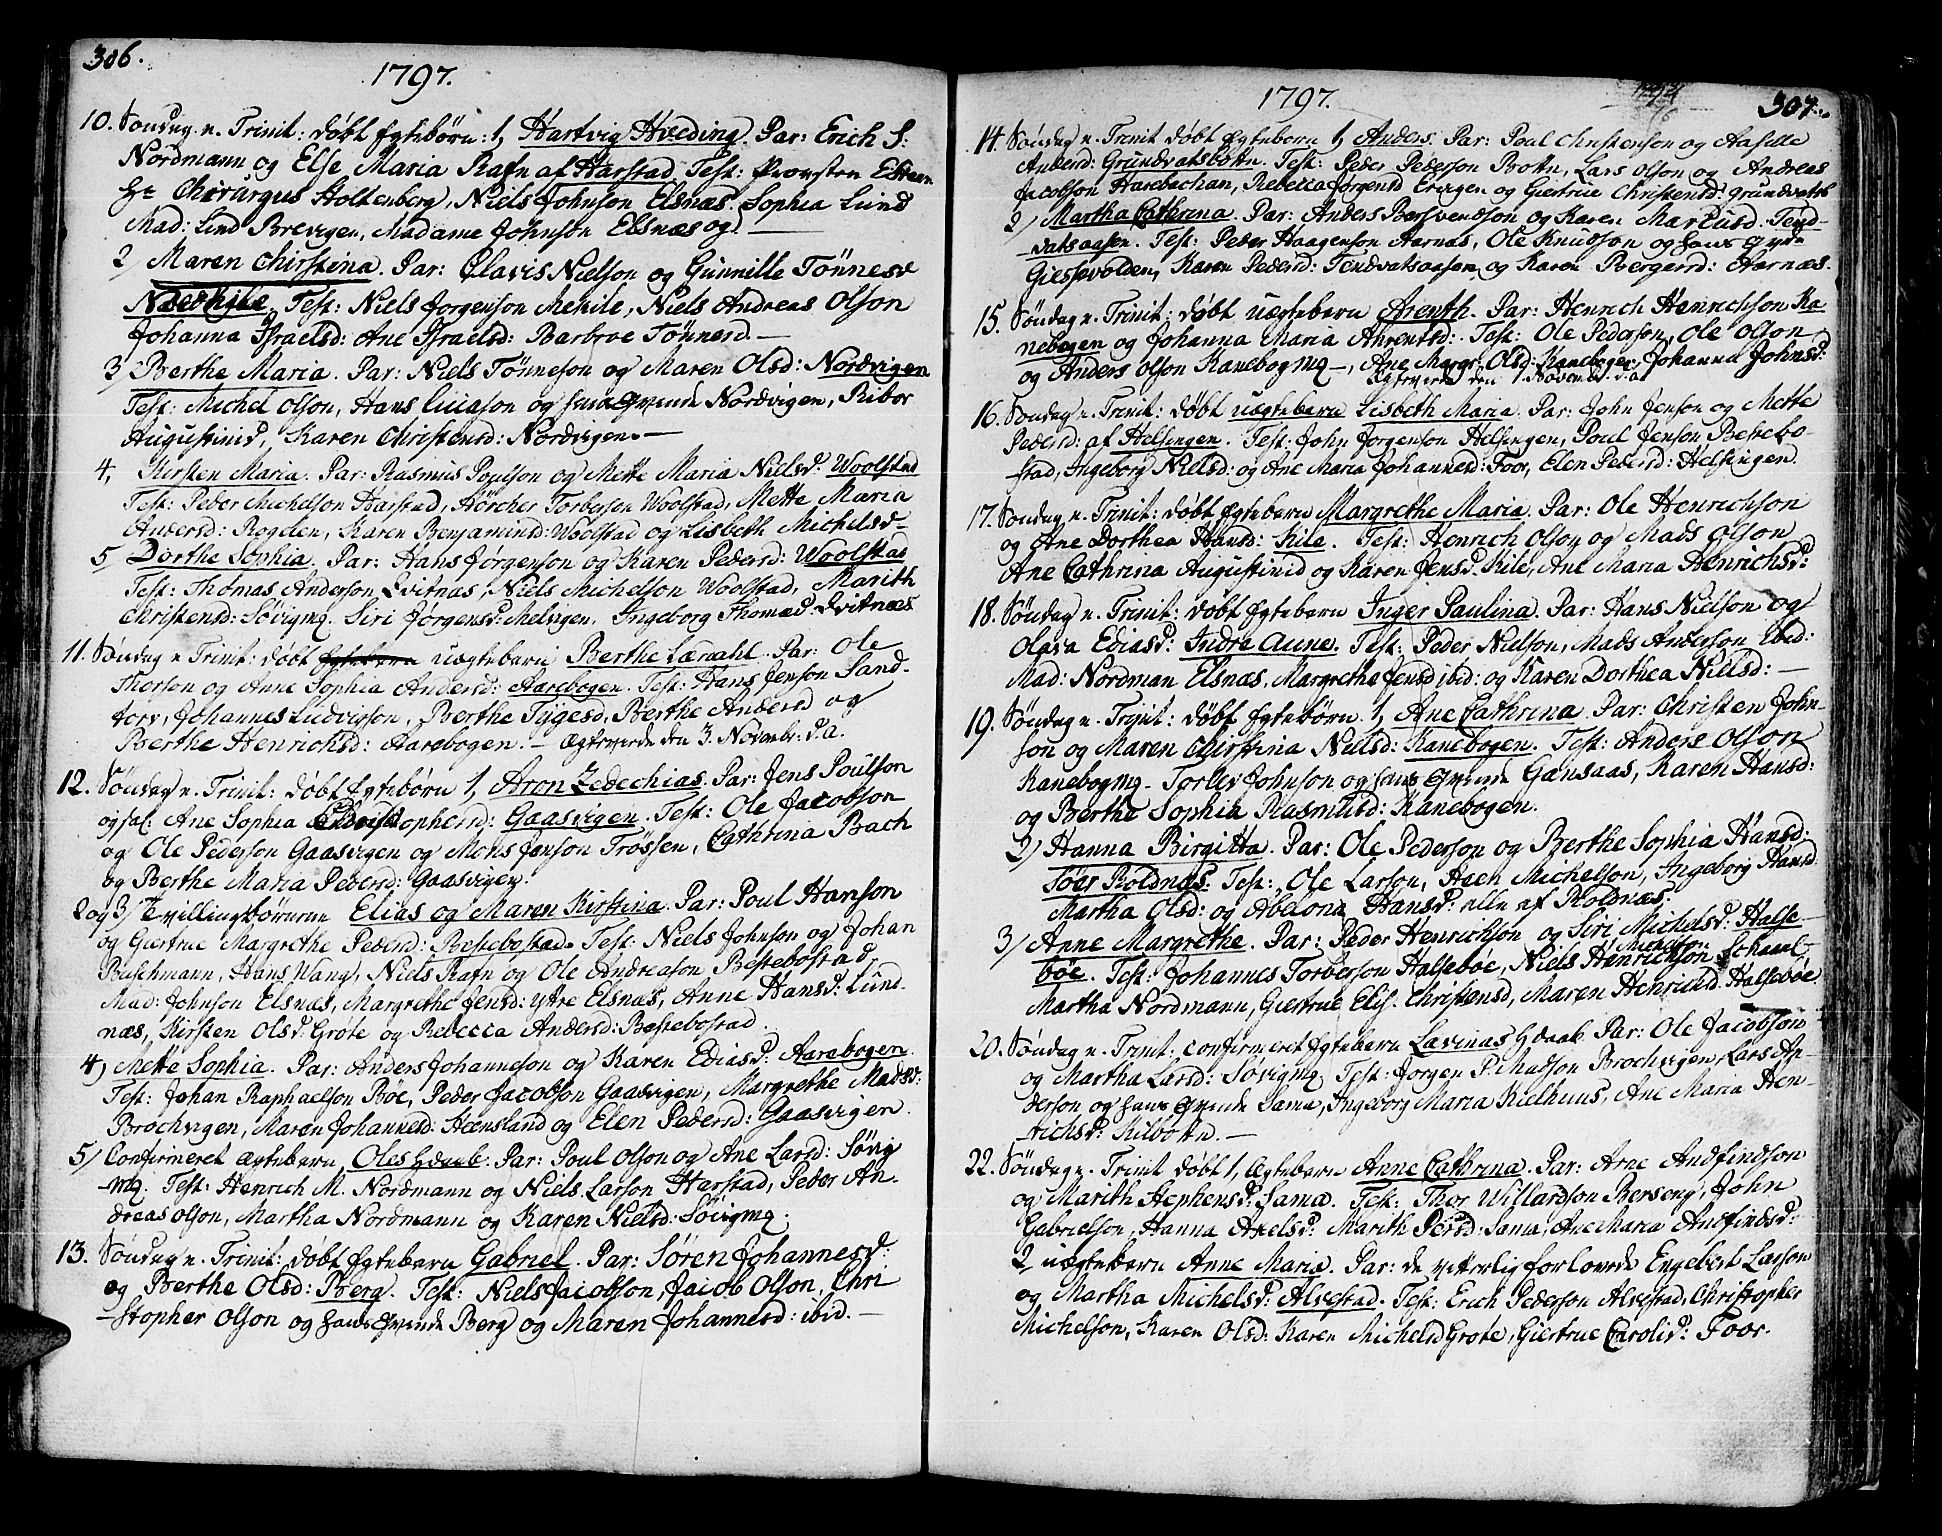 306.
1797.
10. Søndag n. Trinit: døbt Egtebørn: 1, Hartvig Hveding. Par: Erich S:
Nordmann og Else Maria Rafn af Harstad. Test: Provsten
Hr Chirurgus Holtenberg, Niels Johnson Elsnæs. Sophia Lund
Mad: Lind Brevigen, Madame Johnson Elsnæs og
2/ Maren Chirstina. Par: Clavis Nielson og Gunnille Tønnesd
Test: Niels Jorgenson Mehile, Niels Andreas Olson
Johanna Israelsd: Ane Israelsd: Barbroe Tønnesd. —
3/ Berthe Maria. Par: Niels Tönneson og Maren Olsd: Nordvigen
Test: Michel Olson, Hans Lucason og hans Qvinde Nordvigen, Ribor
Augustinid, Karen Christensd: Nordvigen. —
4, Kirsten Maria. Par: Rasmus Poulson og Mette Maria Nielsd: Woolstad
Test: Peder Michelson Harstad, Hörcher Torberson Woolstad, Mette Maria
Andersd: Rogden, Karen Benjamind: Woolstad og Lisbeth Michelsd-
5 Dorthe Sophia. Par: Hans Jørgenson og Karen Pedersd: Woolstad
Test: Thomas Anderson Qvitnæs, Niels Michelson Woolstad, Marith
Christensd: Søvigmg. Siri Jørgensd: Melvigen, Ingeborg Thomæd: Qvitnæs
11. Søndag n Trinit: døbt Egtebarn uægtebarn Berthe Lærdahl. Par: Ole
Thorson og Anne Sophia Andersd: Aarebogen. Test: Hans Jenson Sand-
torv, Johannes Ludvigson, Berthe Tygesd, Berthe Andersd og
Berthe Henrichsd: Aarebogen. — Ægtevierde den 3. Novembr. d. a.
12. Søndag n. Trinit: døbt Egtebørn 1, Aron Zedechias. Par: Jens Poulson
og Ane Sophia Gaasvigen. Test: Ole Jacobson
og Ole Pederson Gaasvigen og Mons Jenson Trøssen, Cathrina Bach
og Berthe Maria Pedersd: Gaasvigen.
2 og 3/ Tvillingbörnene Elias og Maren Kirstina. Par: Poul Hanson
og Giertrue Margrethe Pedersd: Bestebostad. Test: Niels Johnson og Johan
Buschmann, Hans Wang, Niels Rafn og Ole Andreason Bestebostad,
Mad: Johnson Elsnæs, Margrethe Jensd: ytre Elsnæs, Anne Hansd: Lund-
næs, Kirsten Olsd: Grøte og Rebecca Andersd: Bestebostad.
4, Mette Sophia. Par: Anders Johanneson og Karen Ediasd: Aarebogen.
Test: Johan Raphaelson Böe, Peder Jacobson Gaasvigen, Margrethe Madsd:
Brochvigen, Maren Johannesd: Hænsland og Elen Pedersd: Gaasvigen.
5/ Confirmeret ægtebarn, Oles hdaab. Par: Poul Olson og Ane Larsd: Søvig
-mg. Test: Henrich M. Nordmann og Niels Larson Harstad, Peder An-
dreas Olson, Martha Nordmann og Karen Nielsd: Søvigmg.
13. Søndag n. Trinit: døbt Egtebarn Gabriel. Par: Søren Johannesd:
og Berthe Olsd: Berg. Test: Niels Jacobson, Jacob Olson, Chri
-stopher Olson og hans Qvinde Berg og Maren Johannesd: ibid. —
307.
1797.
14. Søndag n. Trinit døbt Egtebarn 1, Anders. Par: Poul Christenson og Aaselle
Andersd: Grundvatsbotn. Test: Peder Pederson Botn, Lars Olson og Andreas
Jacobson Harebachan, Rebecca Jorgensd Ervigen og Giertrue Christensd: Grundvatsb
2/ Martha Cathrina. Par: Anders Bersvendson og Karen Marcusd. Tend-
vatsaasen. Test: Peder Haagenson Aarnæs, Ole Knudson og hans Qvin-
Giessevolden, Karen Pedersd: Tendvatsaasen og Karen Bergersd: Aarnæs.
15. Søndag n. Trinit: døbt uægtebarn Arenth. Par: Henrich Henrichson Ka-
nebogen og Johanna Maria Ahrentsd: Test: Ole Pederson, Ole Olson
og Anders Olson Kanebogmg —, Ane Margr: Olsd: Kaneboger, Johanna Johnsd:
Egtevierde den 1 Novembr. d. a.
16. Søndag n. Trinit: døbt uægtebarn Lisbeth Maria. Par: John Jenson og Mette
Pedersd: af Helsingen. Test: John Jorgenson Helsingen, Poul Jenson Bestebo-
stad, Ingeborg Nielsd: og Ane Maria Johannesd: Foor, Elen Pedersd: Helsingen.
17. Søndag n. Trinit: døbt Egtebarn Margrethe Maria. Par: Ole Henrichson
og Ane Dorthea Hansd: Kile. Test: Henrich Olson og Mads Olson
Ane Cathrina Augustinid og Karen Jensd. Kile, Ane Maria Henrichsd:
18. Søndag n. Trinit: døbt Egtebarn Inger Paulina. Par: Hans Nielson og
Olava Ediasd: Indre Aune. Test: Peder Nielson, Mads Anderson ibid:
Mad: Nordman Elsnæs, Margrethe Jensd ibid: og Karen Dorthea Nielsd: —
19. Søndag n. Trinit: døbt Egtebørn. 1, Ane Cathrina. Par: Christen John-
son og Maren Chirstina Nielsd: Kanebogen. Test: Anders Olson
Kanebogmg- Torlev Johnson og hans Qvinde Gansaas, Karen Hansd:
og Berthe Sophia Rasmusd: Kanebogen.
2/ Hanna Birgitta. Par: Ole Pederson og Berthe Sophia Hansd:
Söer Roldnæs: Test: Ole Larson, Michelson, Ingeborg Hansd
Martha Olsd: og Abelona Hansd: alle af Roldnæs.
3/ Anne Margrethe. Par: Peder Henrichson og Siri Michelsd: Halse-
böe. Test: Johannes Torberson Halseböe, Niels Henrichson
Martha Nordmann, Giertrue Elis. Christensd, Maren Henrichsd. Halseböe
20. Søndag n. Trinit: confirmeret Egtebarn Lavinas hdaab. Par: Ole Jacobson
og Martha Larsd: Søvigmg. Test: Jorgen P. Madson Brochvigen, Lars An-
derson og hans Qvinde Sama, Ingeborg Maria Kielhuus, Ane Maria Hen-
richsd: Kilbotn. —
22. Søndag n. Trinit døbt 1, ægtebarn Anne Cathrina. Par: Arne Andfindson
og Marith Stephensd: Sama. Test: Thor Willardson Berseng, John
Gabrielson, Hanna Axelsd: Marith Persd: Sama, Ane Maria Andfindsd:
2/ uægtebarn Anne Maria. Par: de vitterlig forlovede Engebret Larson
og Martha Michelsd: Alvestad. Test: Erich Pederson Alvestad, Christopher
Michelson, Karen Olsd: Karen Michelsd Grøte, Giertrue Carolisd: Foor.